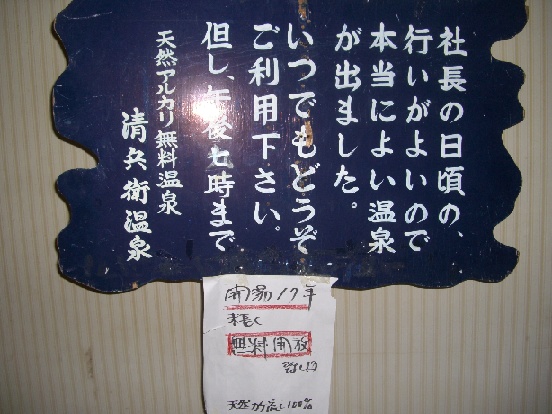 社長の日頃の、
行いがよいので
本当によい温泉
が出ました。
いつでもどうぞ
ご利用下さい。
但し、午後七時まで
天然アルカリ無料温泉
清兵衛温泉
開湯17年
無料開放
天然かけ流し100%